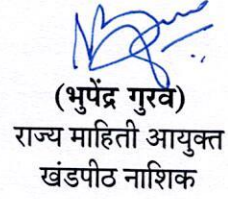 (भुपेंद्र गुरव)
राज्य माहिती आयुक्त
खंडपीठ नाशिक